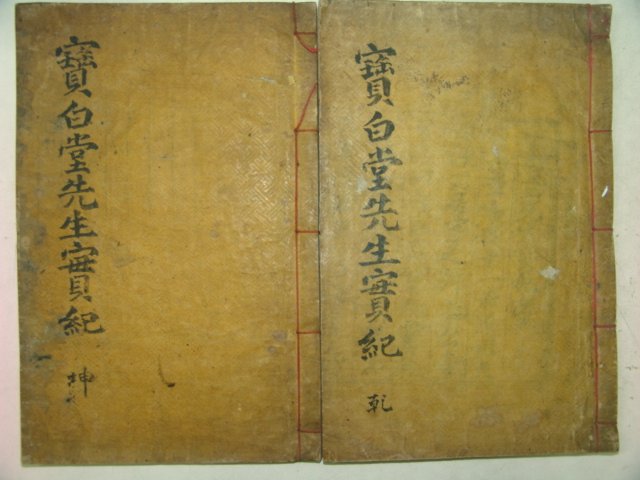 寶白堂先生實紀 乾
寶白堂先生實紀 坤